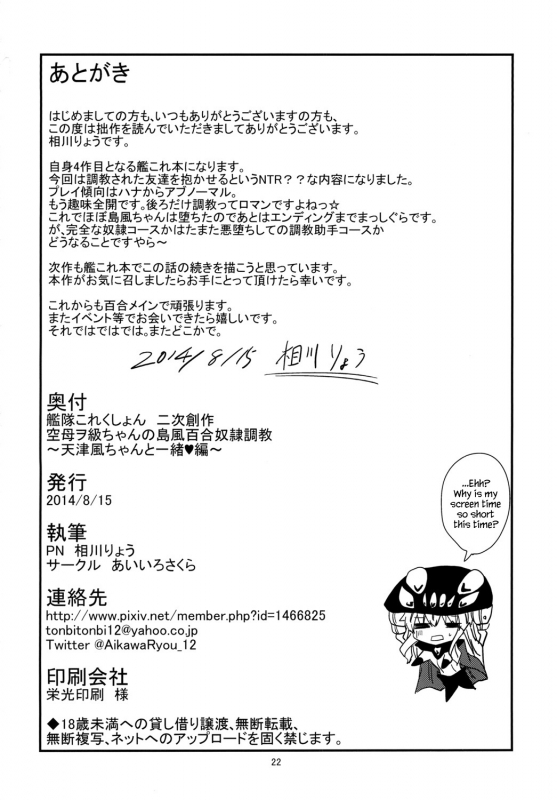 あとがき
はじめましての方も、いつもありがとうございますの方も、
この度は拙作を読んでいただきましてありがとうございます。
相川りょうです。
自身4作目となる艦これ本になります。
今回は調教された友達を抱かせるというNTR？？な内容になりました。
プレイ傾向はハナからアブノーマル。
もう趣味全開です。後ろだけ調教ってロマンですよねっ☆
これでほぼ島風ちゃんは堕ちたのであとはエンディングまでまっしぐらです。
が、完全な奴隷コースかはたまた悪堕ちしての調教助手コースか
どうなることですやら～
次作も艦これ本でこの話の続きを描こうと思っています。
本作がお気に召しましたらお手にとって頂けたら幸いです。
これからも百合メインで頑張ります。
またイベント等でお会いできたら嬉しいです。
それではではでは。またどこかで。
2014/8/15 相川りょう
奥付
艦隊これくしょん 二次創作
空母ヲ級ちゃんの島風百合奴隷調教
～天津風ちゃんと一緒♥編～
発行
2014/8/15
執筆
PN 相川りょう
サークル あいいろさくら
連絡先
http://www.pixiv.net/member.php?id=1466825
tonbitonbi12@yahoo.co.jp
Twitter @AikawaRyou_12
印刷会社
栄光印刷 様
◆18歳未満への貸し借り譲渡、無断転載、
無断複写、ネットへのアップロードを固く禁じます。
...Ehh?
Why is my
screen time
so short
this time?
22